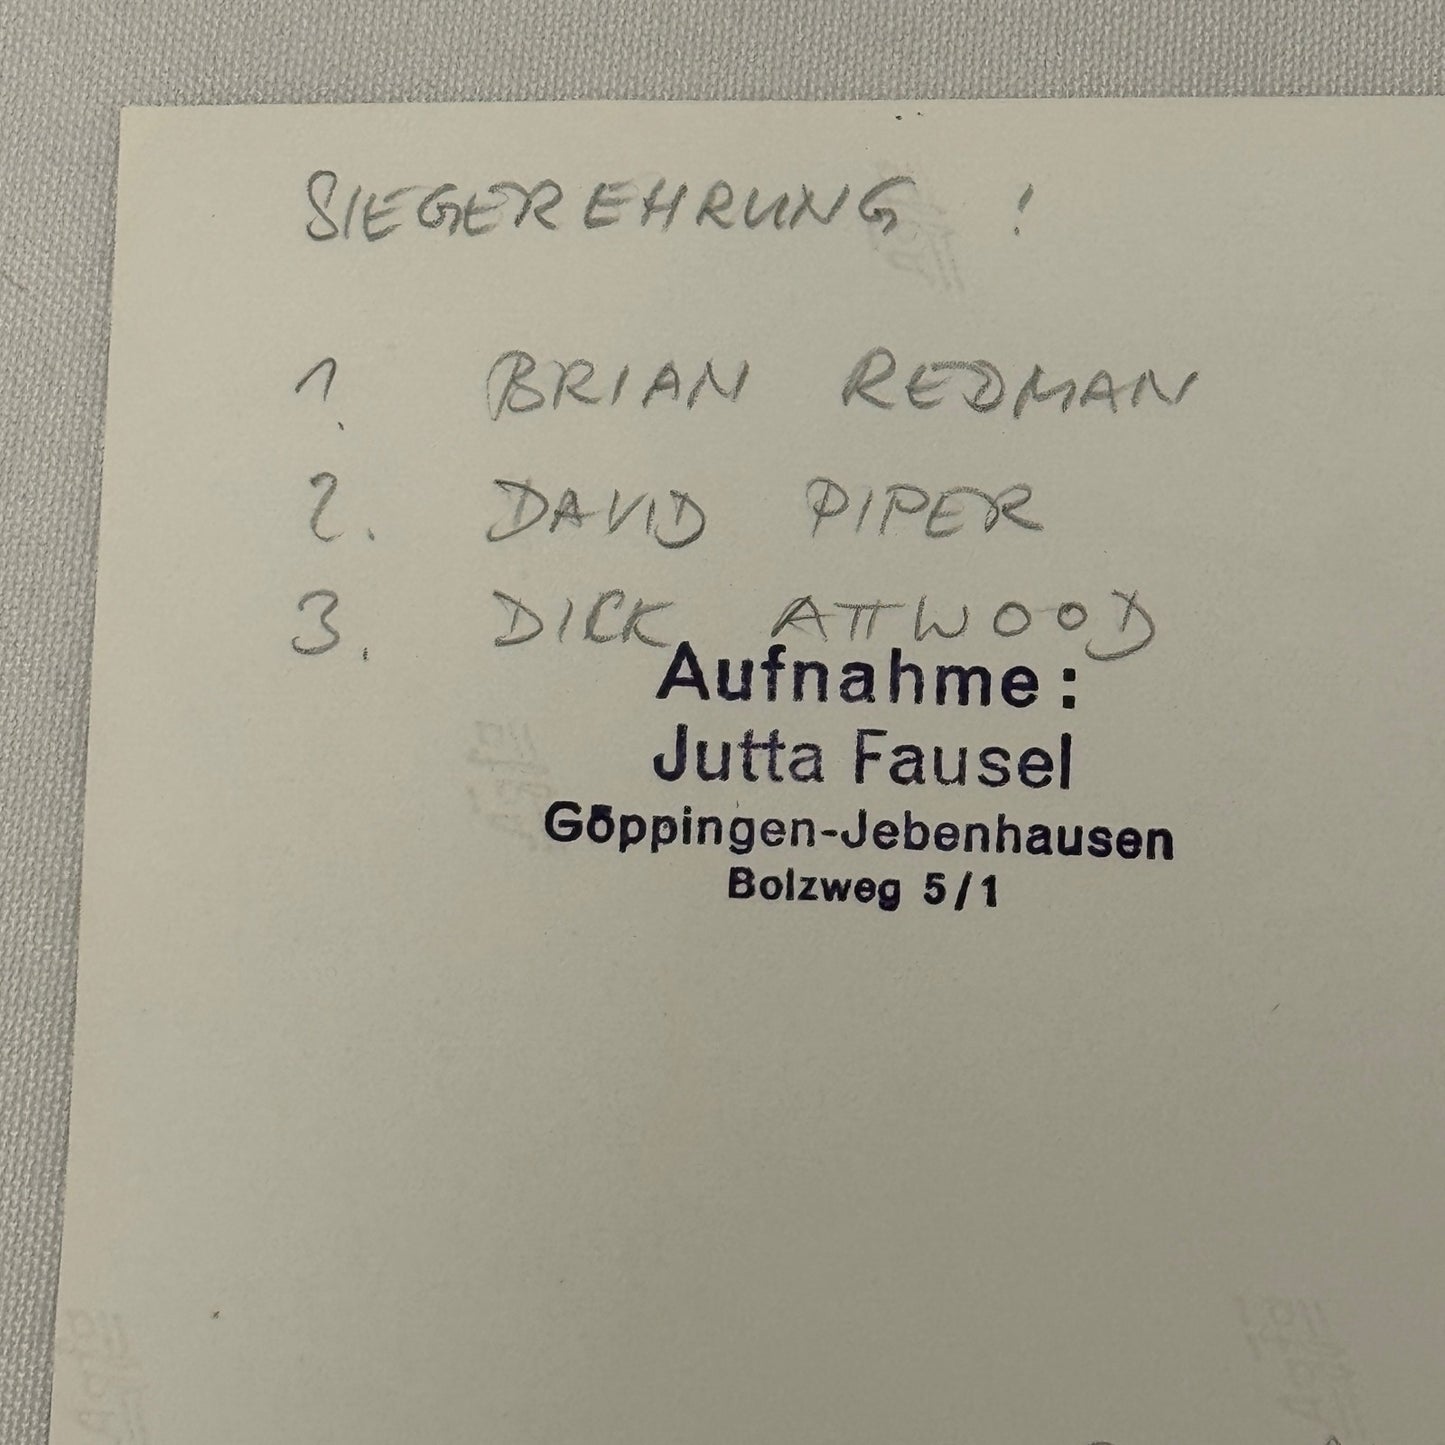 SIEGEREHRUNG !
1. BRIAN REDMAN
2. DAVID PIPER
3. DICK ATTWOOD
Aufnahme:
Jutta Fausel
Göppingen-Jebenhausen
Bolzweg 5/1